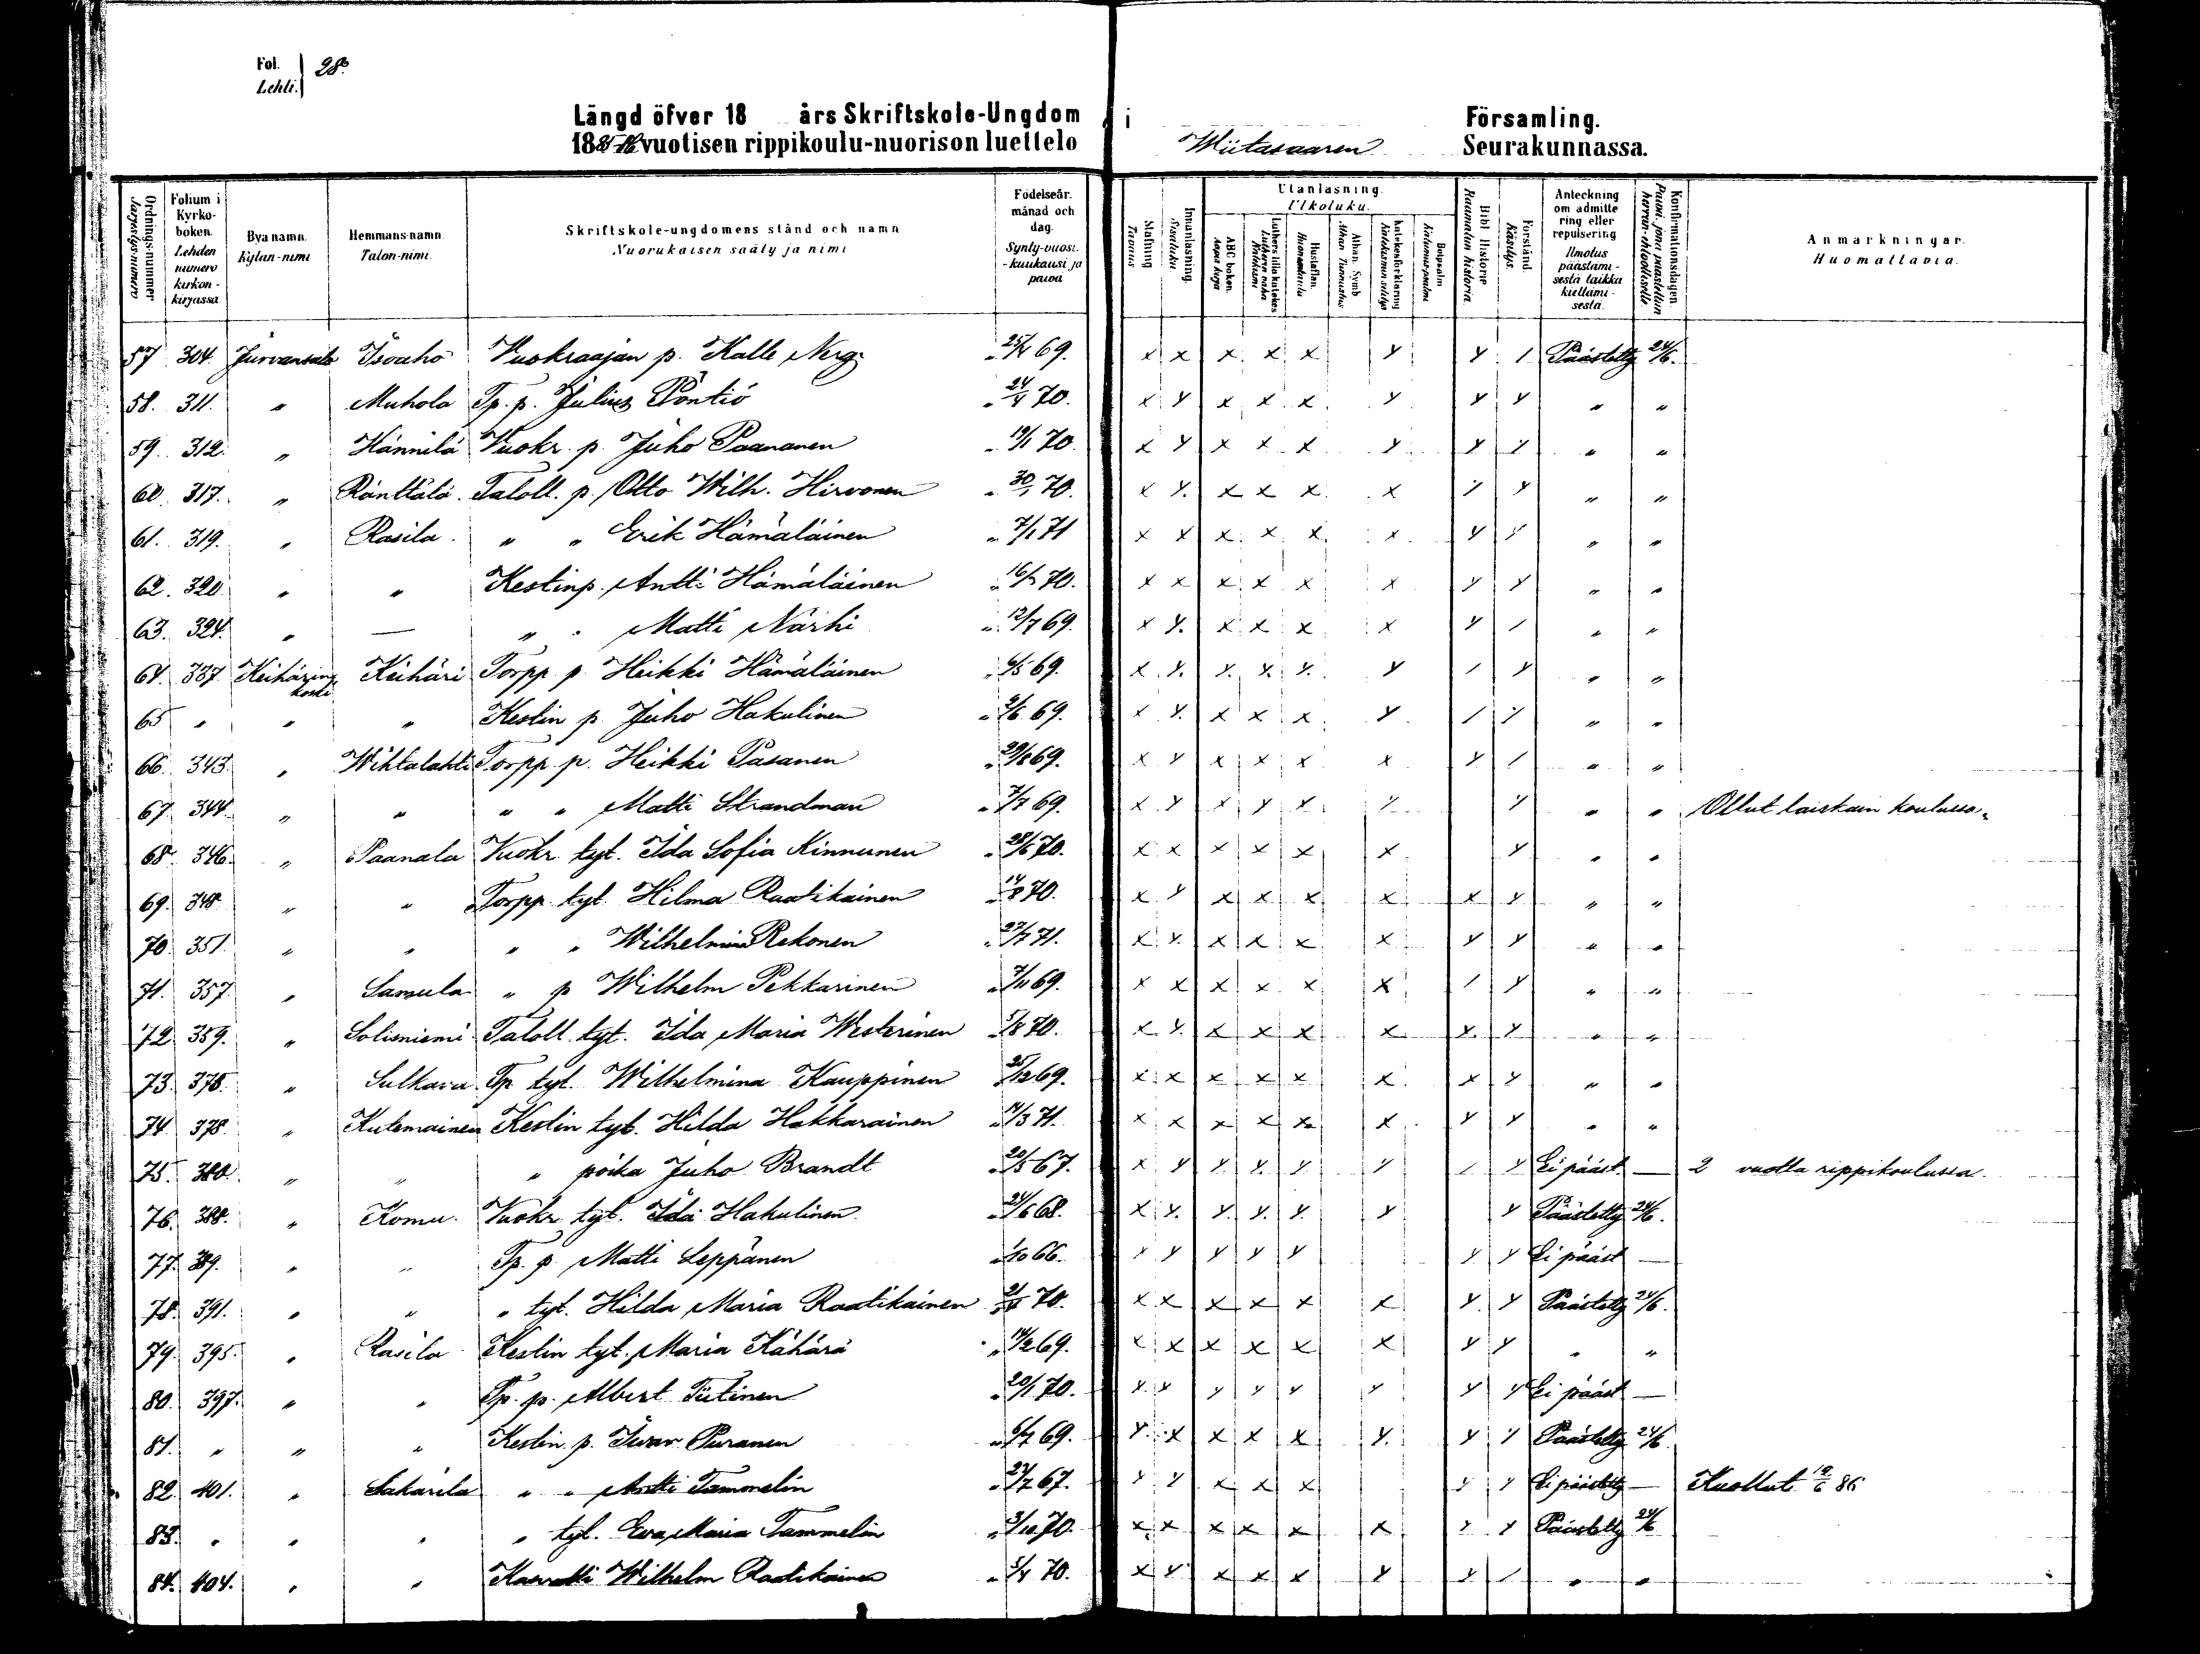 Fol. Lehti. 28.
Längd öfver 18 års Skriftskole-Ungdom i Församling.
1885-86 vuotisen rippikoulu-nuorison luettelo Wiitasaaren Seurakunnassa.
Ordnings-nummer Järjestys-numero
Folium i Kyrko-boken. Lehden numero kirkon-kirjassa
Bya namn. Kylän-nimi
Hemmans-namn. Talon-nimi.
Skriftskole-ungdomens stånd och namn Nuorukaisen sääty ja nimi
Födelseår. månad och dag. Synty-vuosi. -kuukausi ja päivä
Stafning Tavaus
Innanläsning. Sisäluku
Utanläsning. Ulkoluku.
ABC boken. Aapis kirja
Luthers lilla katekes Lutherin vähä Katekismi
Hustaflan. Huoneentaulu
Athan. Symb Athan. Tunnustus
Katekesförklaring Katekismon selitys
Botpsalm Katumus-psalmi
Bibl. Historie Raamatun historia.
Förstånd. Käsitys.
Anteckning om admittering eller repulsering Ilmoitus päästämisestä taikka kieltämisestä.
Konfirmationsdagen. Päivä, jona päästettiin herran-ehtoolliselle
Anmärkningar. Huomattavia.
57 304. Jurvansalo Isoaho Vuokraajan p. Kalle Nerg " 25/4 69. x x x x x y y / Päästetty 24/6.
58. 311. " Muhola Tp. p. Julius Pöntiö " 24/4 70. x y x x x y y y " "
59. 312. " Hännilä Vuokr. p. Juho Paananen " 19/1 70 x y x x x y y y " "
60. 317. " Ränttälä. Taloll. p. Otto Wilh. Hirvonen " 30/1 70. x y. x x x x y y " "
61. 319. " Rasila. " " Erik Hämäläinen " 7/1 71 x x x x x x y y " "
62. 320. " " Kestinp. Antti Hämäläinen 70. x x x x x x y y " "
63. 324. " — " " Matti Närhi " 12/7 69. x y. x x x x y / " "
64. 337 Keihärinkoski Keihäri Torpp p Heikki Hämäläinen 6/5 69. x y. y. y. y. y / y " "
65 " " " Kestin p. Juho Hakulinen 69. x y. x x x y / y " "
66. 343. " Wihtalahti Torpp. p. Heikki Pasanen 69. x y x x x x y / " "
67. 344. " " " " Matti Strandman " 7/7 69. x y x y x y y " " Ollut laiskain koulussa.
68. 346. " Paanala Vuokr. tyt. Ida Sofia Kinnunen 28/6 70. x x x x x x y " "
69. 348. " " Torpp. tyt Hilma Raatikainen 14/8 70. x y x x x x x y " "
70. 351. " " " " Wilhelmina Rekonen 27/7 71. x y. x x x x y y " "
71. 357. " Samula " p Wilhelm Pekkarinen 7/11 69. x x x x x x / y " "
72. 359. " Solisniemi Taloll. tyt. Ida Maria Westerinen 5/8 70. x y. x x x x x y " "
73. 375. " Sulkava. Tp tyt. Wilhelmina Kauppinen 25/12 69. x x x x x x x y " "
74. 378. " Kutemainen Kestin tyt. Hilda Hakkarainen 14/3 71. x x x x x x y y " "
75. 380. " " " poika Juho Brandt 20/5 67. x y y. y. y y / y Ei pääst. — 2 vuotta rippikoulussa.
76. 388. " Komu. Vuokr. tyt. Ida Hakulinen 24/6 68. x y. y. y. y. y y Päästetty 24/6.
77. 389. " " Tp. p. Matti Leppänen 66. y y y y y y y Ei pääst —
78. 391. " " " tyt. Hilda Maria Raatikainen 70. x x x x x x y y Päästetty 24/6.
79. 395. " Rasila Kestin tyt. Maria Kähärä " 14/2 69. x x x x x x y y " "
80. 397. " " Tp. p. Albert Tiitinen " 20/1 70. y y y y y y y y Ei pääst —
81. " " " Kestin p. Iwar Puranen " 6/7 69. y x x x x y. y y Päästetty 24/6.
82. 401. " Sakärilä " " Antti Tammelin 27/7 67. y y x x x y y Ei päästetty — Kuollut 12/6 86
83. " " " " tyt. Eva Maria Tammelin " 3/10 70. x x x x x x y y Päästetty 24/6
84. 404. " " Kasvatti Wilhelm Raatikainen " 5/4 70. x y x x x y y / " "